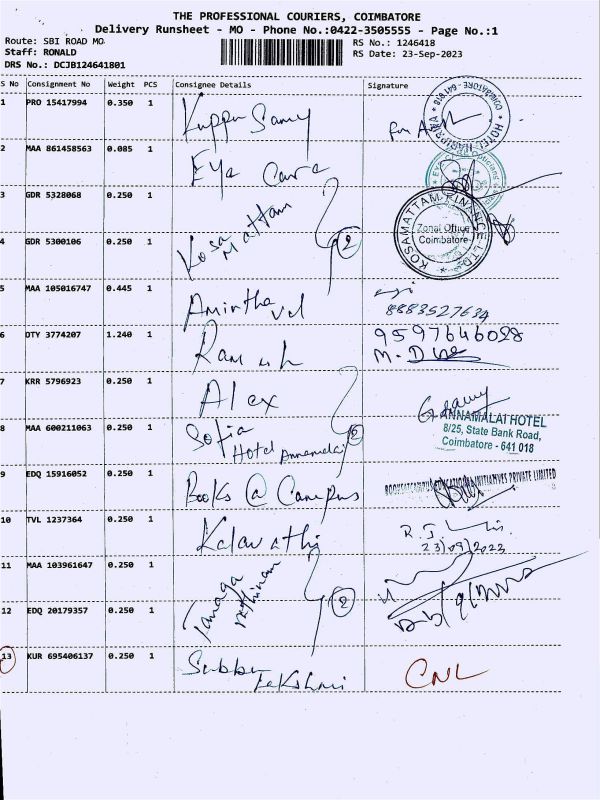 THE PROFESSIONAL COURIERS, COIMBATORE
Delivery Runsheet - MO - Phone No.:0422-3505555 - Page No.:1
Route: SBI ROAD MO
Staff: RONALD
DRS No.: DCJB124641801
RS No.: 1246418
RS Date: 23-Sep-2023
S No Consignment No Weight PCS Consignee Details Signature
1 PRO 15417994 0.350 1 Kuppu Samy for
COIMBATORE - 641 018 * HOTEL HARIPRIYA *
2 MAA 861458563 0.085 1 Eye Care
3 GDR 5328068 0.250 1 Kosa Mattam
4 GDR 5300106 0.250 1 2
KOSAMATTAM FINANCE LTD.
Zonal Office
Coimbatore
5 MAA 105016747 0.445 1 Amirtha vel
8883527634
6 DTY 3774207 1.240 1 Ramesh 9597646028
M.
7 KRR 5796923 0.250 1 Alex
8 MAA 600211063 0.250 1 Sofia Hotel Annamalai 2
ANNAMALAI HOTEL
8/25, State Bank Road,
Coimbatore - 641 018
9 EDQ 15916052 0.250 1 Books @ Campus
INITIATIVES PRIVATE LIMITED
10 TVL 1237364 0.250 1 Kalavathi
23/09/2023
11 MAA 103961647 0.250 1
12 EDQ 20179357 0.250 1 2
13 KUR 695406137 0.250 1 Subbu Lekshmi CNL